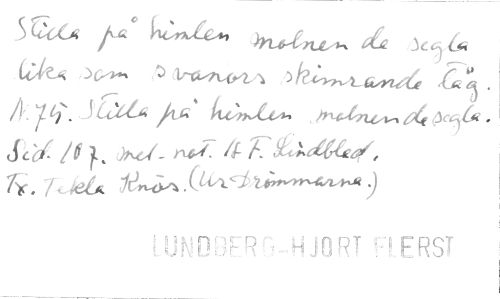 Stilla på himlen molnen de segla
lika som svanors skimrande tåg.
N:75. Stilla på himlen molnen de segla.
Sid. 107. mel-not. A F. Lindblad.
Tx. Tekla Knös. (Ur Drömmarna.)
LUNDBERG-HJORT FLERST